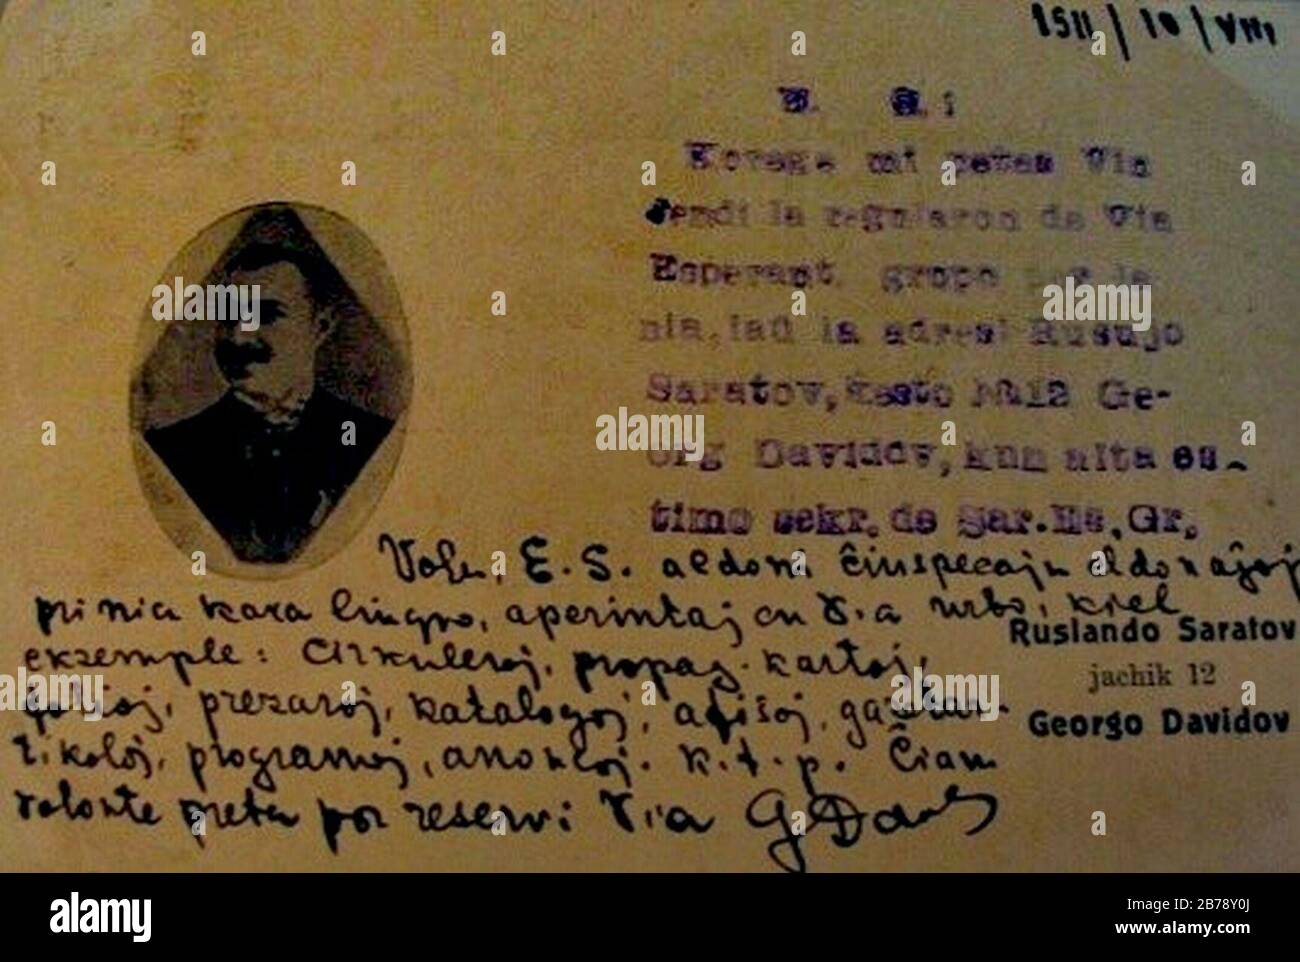 1511/10/VIII
Korege mi petas Vin
sendi la regularon de Via
Esperant grupo por la
nia, laŭ la adresi Rusujo
Saratov, kesto №12 Ge-
org Davidov, kun alta es-
timo sekr. de Sar. Es. Gr.
E. S. aldoni ĉiuspecajn eldonaĵoj
pri nia kara lingvo, aperintaj en Via urbo, kiel
ekzemple: Cirkuleroj, propag. kartoj,
folioj, prezaroj, katalogoj, afiŝoj, gazetar-
tikoloj, programoj, anoncoj. k.t.p. Ĉiam
volonte preta por reservi Via GDav
Ruslando Saratov
jachik 12
Georgo Davidov
alamy
Image ID: 2B78Y0J
www.alamy.com